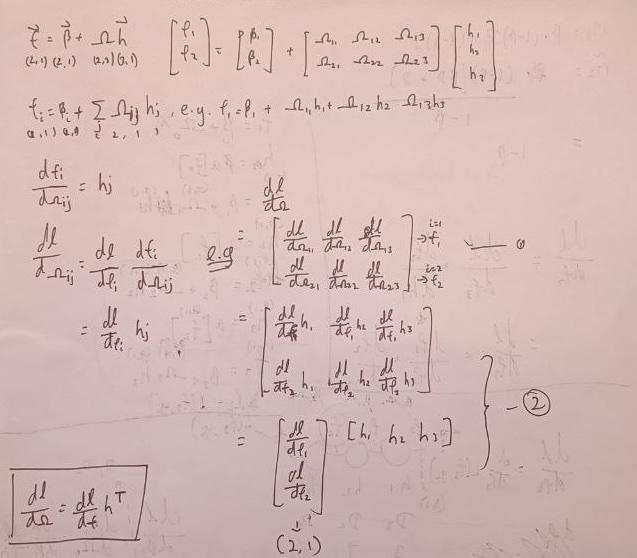 f⃗ = β⃗ + Ω h⃗   [f₁ f₂] = [β₁ β₂] + [Ω₁₁ Ω₁₂ Ω₁₃ Ω₂₁ Ω₂₂ Ω₂₃] [h₁ h₂ h₃]
(2,1) (2,1) (2,3) (3,1)
fᵢ = βᵢ + Σ Ωᵢⱼ hⱼ, e.g. f₁ = β₁ + Ω₁₁h₁ + Ω₁₂h₂ Ω₁₃h₃
dfᵢ/dΩᵢⱼ = hⱼ   dl/dΩ
dl/dΩᵢⱼ = dl/dfᵢ dfᵢ/dΩᵢⱼ   e.g = [dl/dΩ₁₁ dl/dΩ₁₂ dl/dΩ₁₃ → i=1 f₁
dl/dΩ₂₁ dl/dΩ₂₂ dl/dΩ₂₃] → i=2 f₂
= dl/dfᵢ hⱼ   = [dl/df₁ h₁ dl/df₁ h₂ dl/df₁ h₃
dl/df₂ h₁ dl/df₂ h₂ dl/df₃ h₃] } – ②
= [dl/df₁ dl/df₂] [h₁ h₂ h₃]
↓
(2,1)
dl/dΩ = dl/df hᵀ